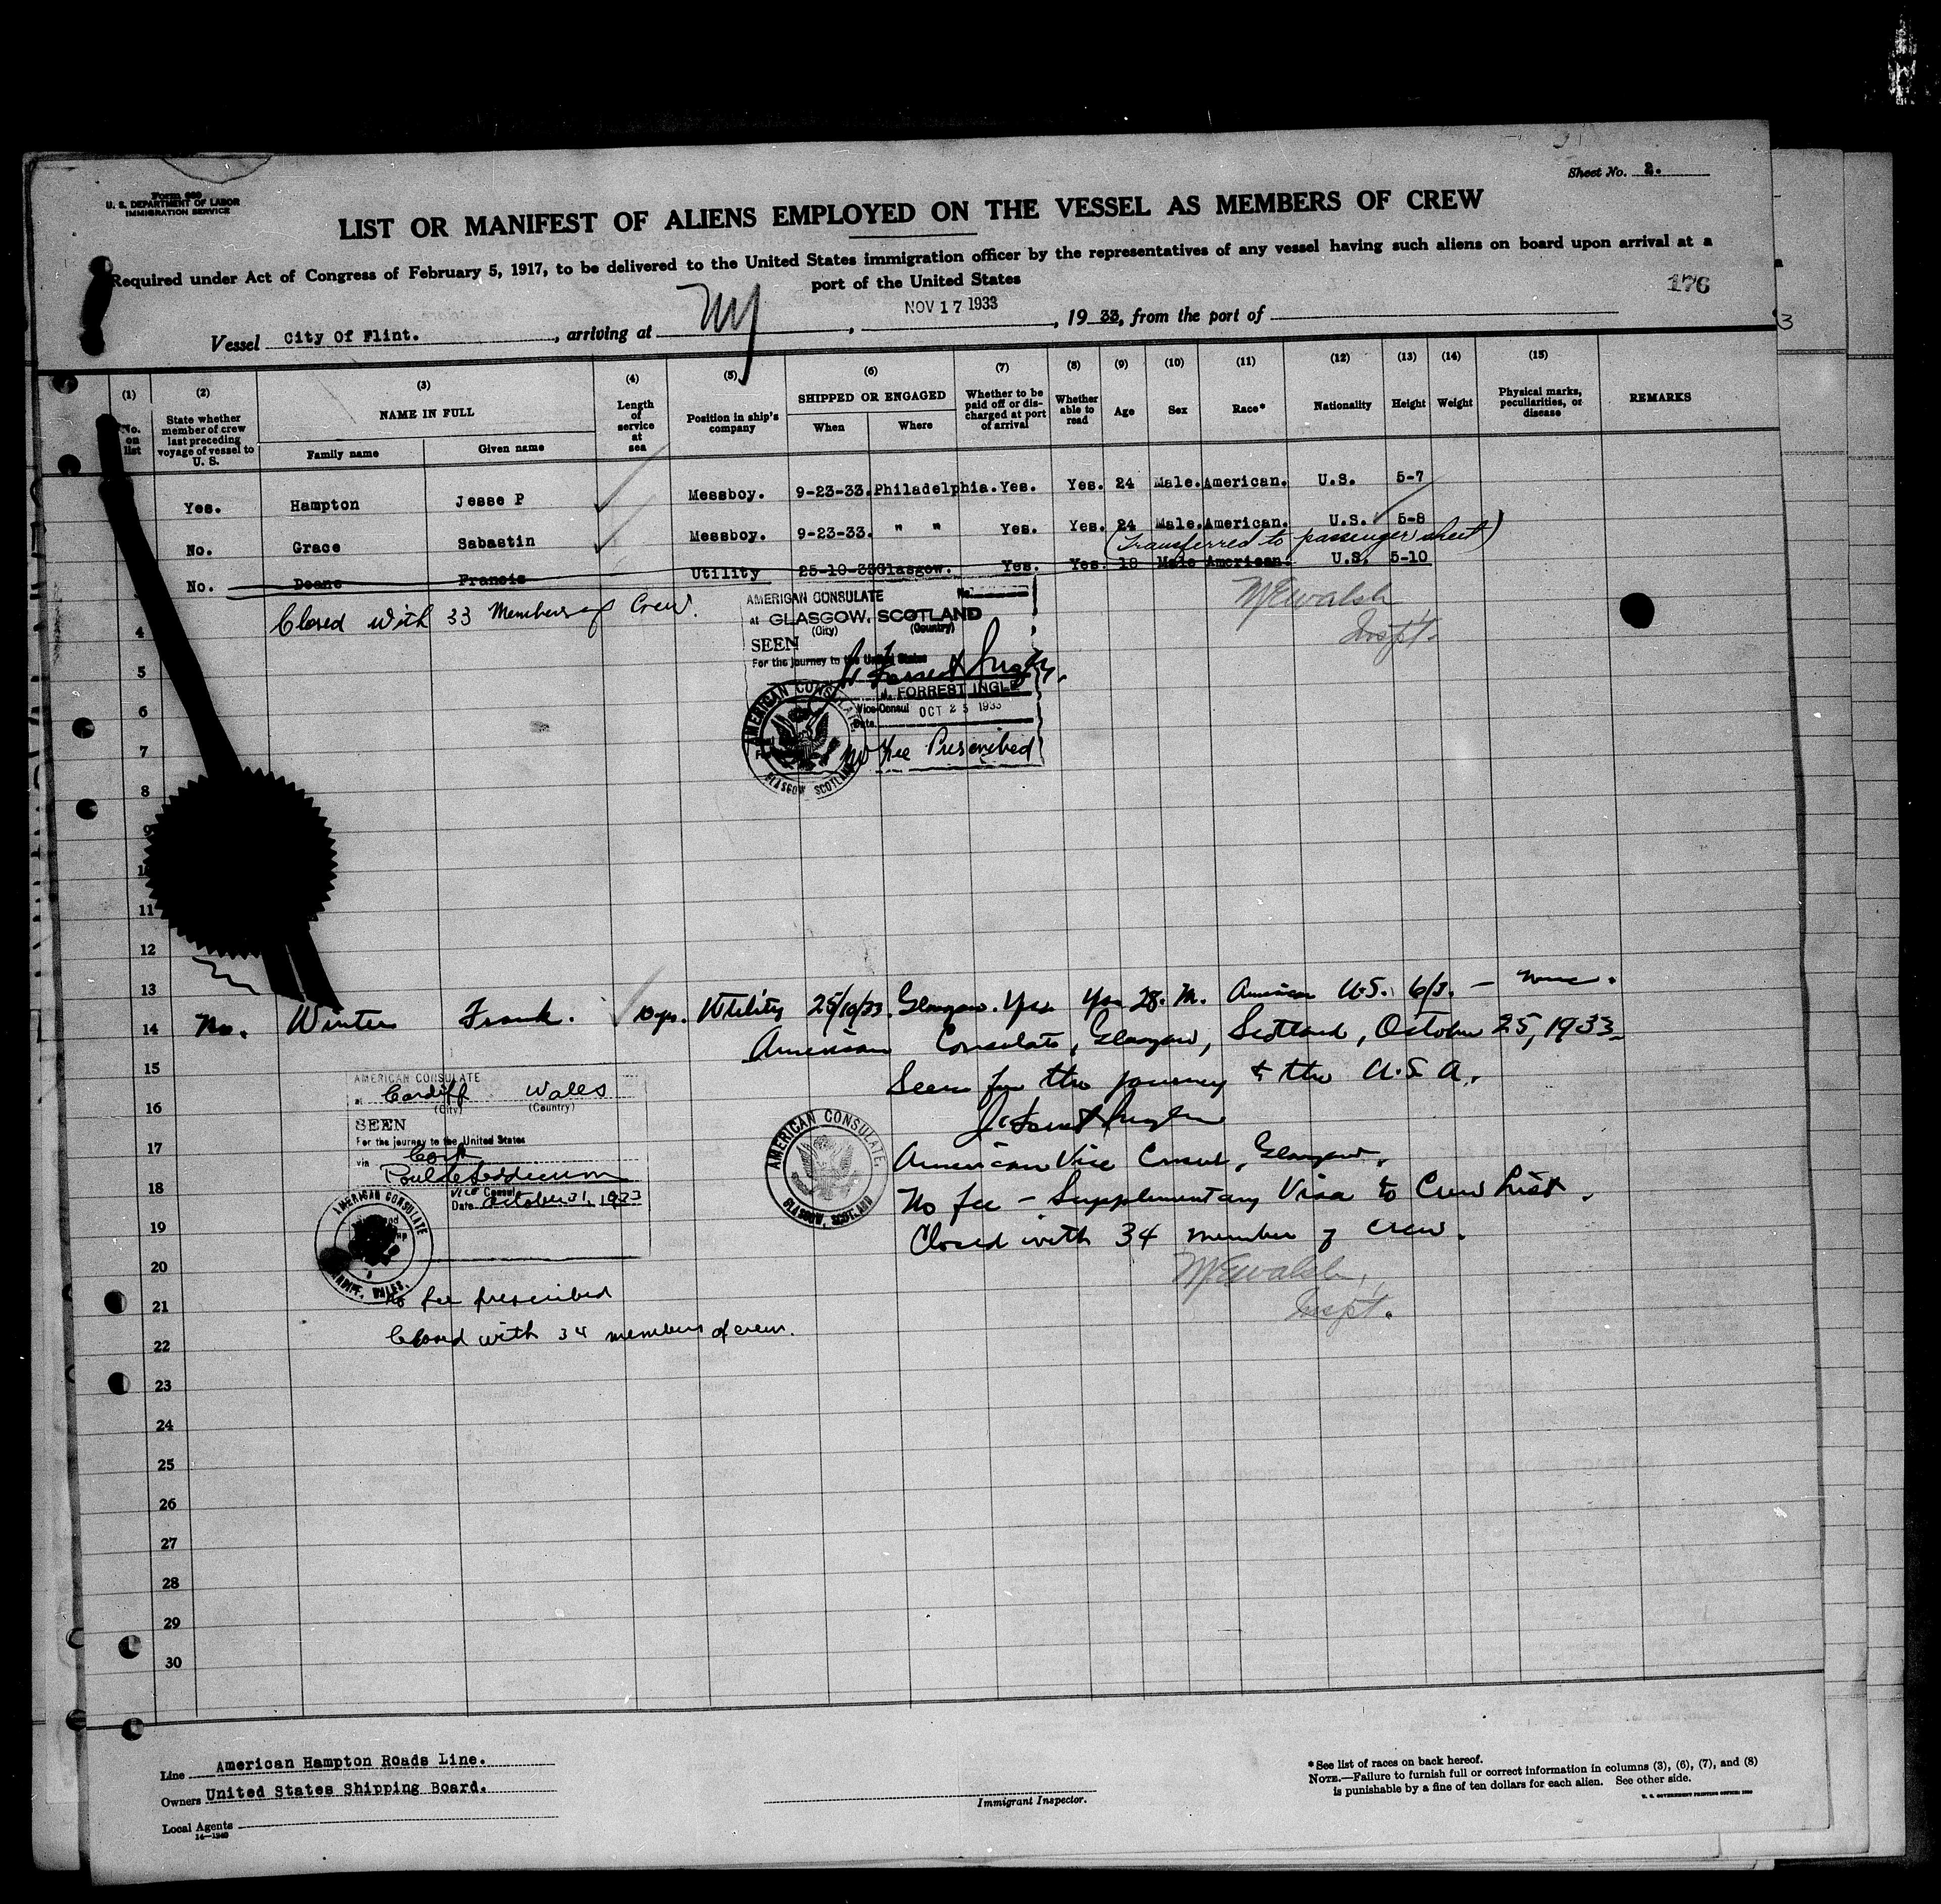 Sheet No. 2.
Form 680
U. S. DEPARTMENT OF LABOR
IMMIGRATION SERVICE
LIST OR MANIFEST OF ALIENS EMPLOYED ON THE VESSEL AS MEMBERS OF CREW
Required under Act of Congress of February 5, 1917, to be delivered to the United States immigration officer by the representatives of any vessel having such aliens on board upon arrival at a
port of the United States
176
Vessel City Of Flint. , arriving at NY , NOV 17 1933 , 19 33, from the port of
(1) (2) (3) (4) (5) (6) (7) (8) (9) (10) (11) (12) (13) (14) (15)
No. on list State whether member of crew last preceding voyage of vessel to U. S. NAME IN FULL Family name Given name Length of service at sea Position in ship's company SHIPPED OR ENGAGED When Where Whether to be paid off or discharged at port of arrival Whether able to read Age Sex Race* Nationality Height Weight Physical marks, peculiarities, or disease REMARKS
Yes. Hampton Jesse P Messboy. 9-23-33. Philadelphia. Yes. Yes. 24 Male. American. U.S. 5-7
No. Grace Sabastin Messboy. 9-23-33. " " Yes. Yes. 24 Male. American. U.S. 5-8
(Transferred to passenger sheet)
No. Doane Francis Utility 25-10-33 Glasgow. Yes. Yes. 18 Male American. U.S. 5-10
Closed with 33 Members of Crew.
McEwalsh
Inspt.
AMERICAN CONSULATE No.
At GLASGOW, SCOTLAND
(City) (Country)
SEEN
For the journey to the United States
J. FORREST INGLE
Vice Consul
Date OCT 25 1933
No Fee Prescribed
AMERICAN CONSULATE
GLASGOW SCOTLAND
4
5
6
7
8
9
10
11
12
13
No. Winter Frank. 10 yrs. Utility 25/10/33. Glasgow. Yes Yes 28. M. American U.S. 6/3. — None.
14
American Consulate, Glasgow, Scotland, October 25, 1933
15
Seen for the journey to the U.S.A.
16
American Vice Consul, Glasgow.
No fee - Supplementary Visa to Crew List.
Closed with 34 member of crew.
McEwalsh,
Inspt.
AMERICAN CONSULATE,
GLASGOW, SCOTLAND
AMERICAN CONSULATE
at Cardiff Wales
(City) (Country)
SEEN
For the journey to the United States
via Cork
Vice Consul
Date October 31, 1933
AMERICAN CONSULATE
CARDIFF, WALES.
No fee prescribed
Closed with 34 members of crew.
17
18
19
20
21
22
23
24
25
26
27
28
29
30
Line American Hampton Roads Line.
Owners United States Shipping Board.
Local Agents
14—1240
Immigrant Inspector.
*See list of races on back hereof.
NOTE.—Failure to furnish full or correct information in columns (3), (6), (7), and (8)
is punishable by a fine of ten dollars for each alien. See other side.
U. S. GOVERNMENT PRINTING OFFICE: 1930
3